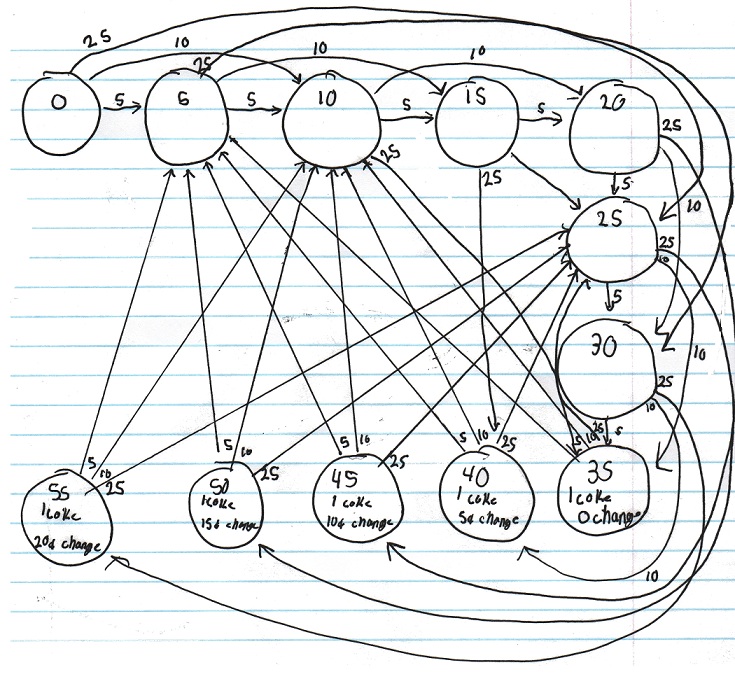 25
10
10
10
25
0
5
5
5
10
5
15
5
20
25
25
25
5
10
25
25
10
5
30
10
25
10
5
5
10
25
55
1 coke
20¢ change
5
10
25
50
1 coke
15¢ change
5
10
25
45
1 coke
10¢ change
5
10
25
40
1 coke
5¢ change
5
10
25
35
1 coke
0 change
10